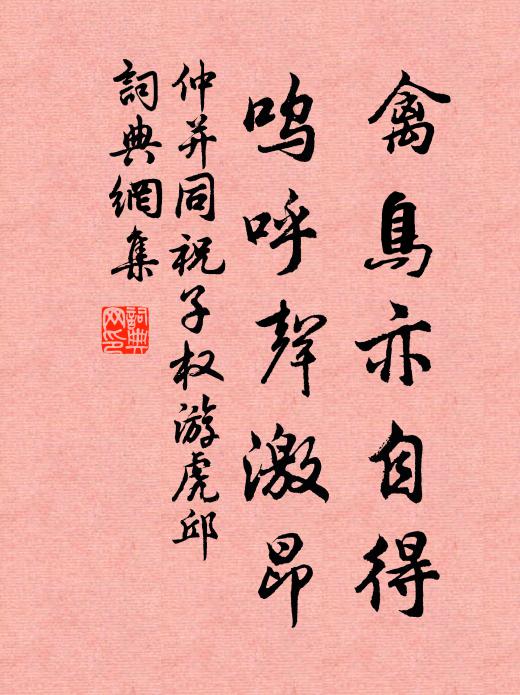 禽鳥亦自得
鳴呼聲激昂
仲并同祝子权游虎邱
詞典網集
詞典網印